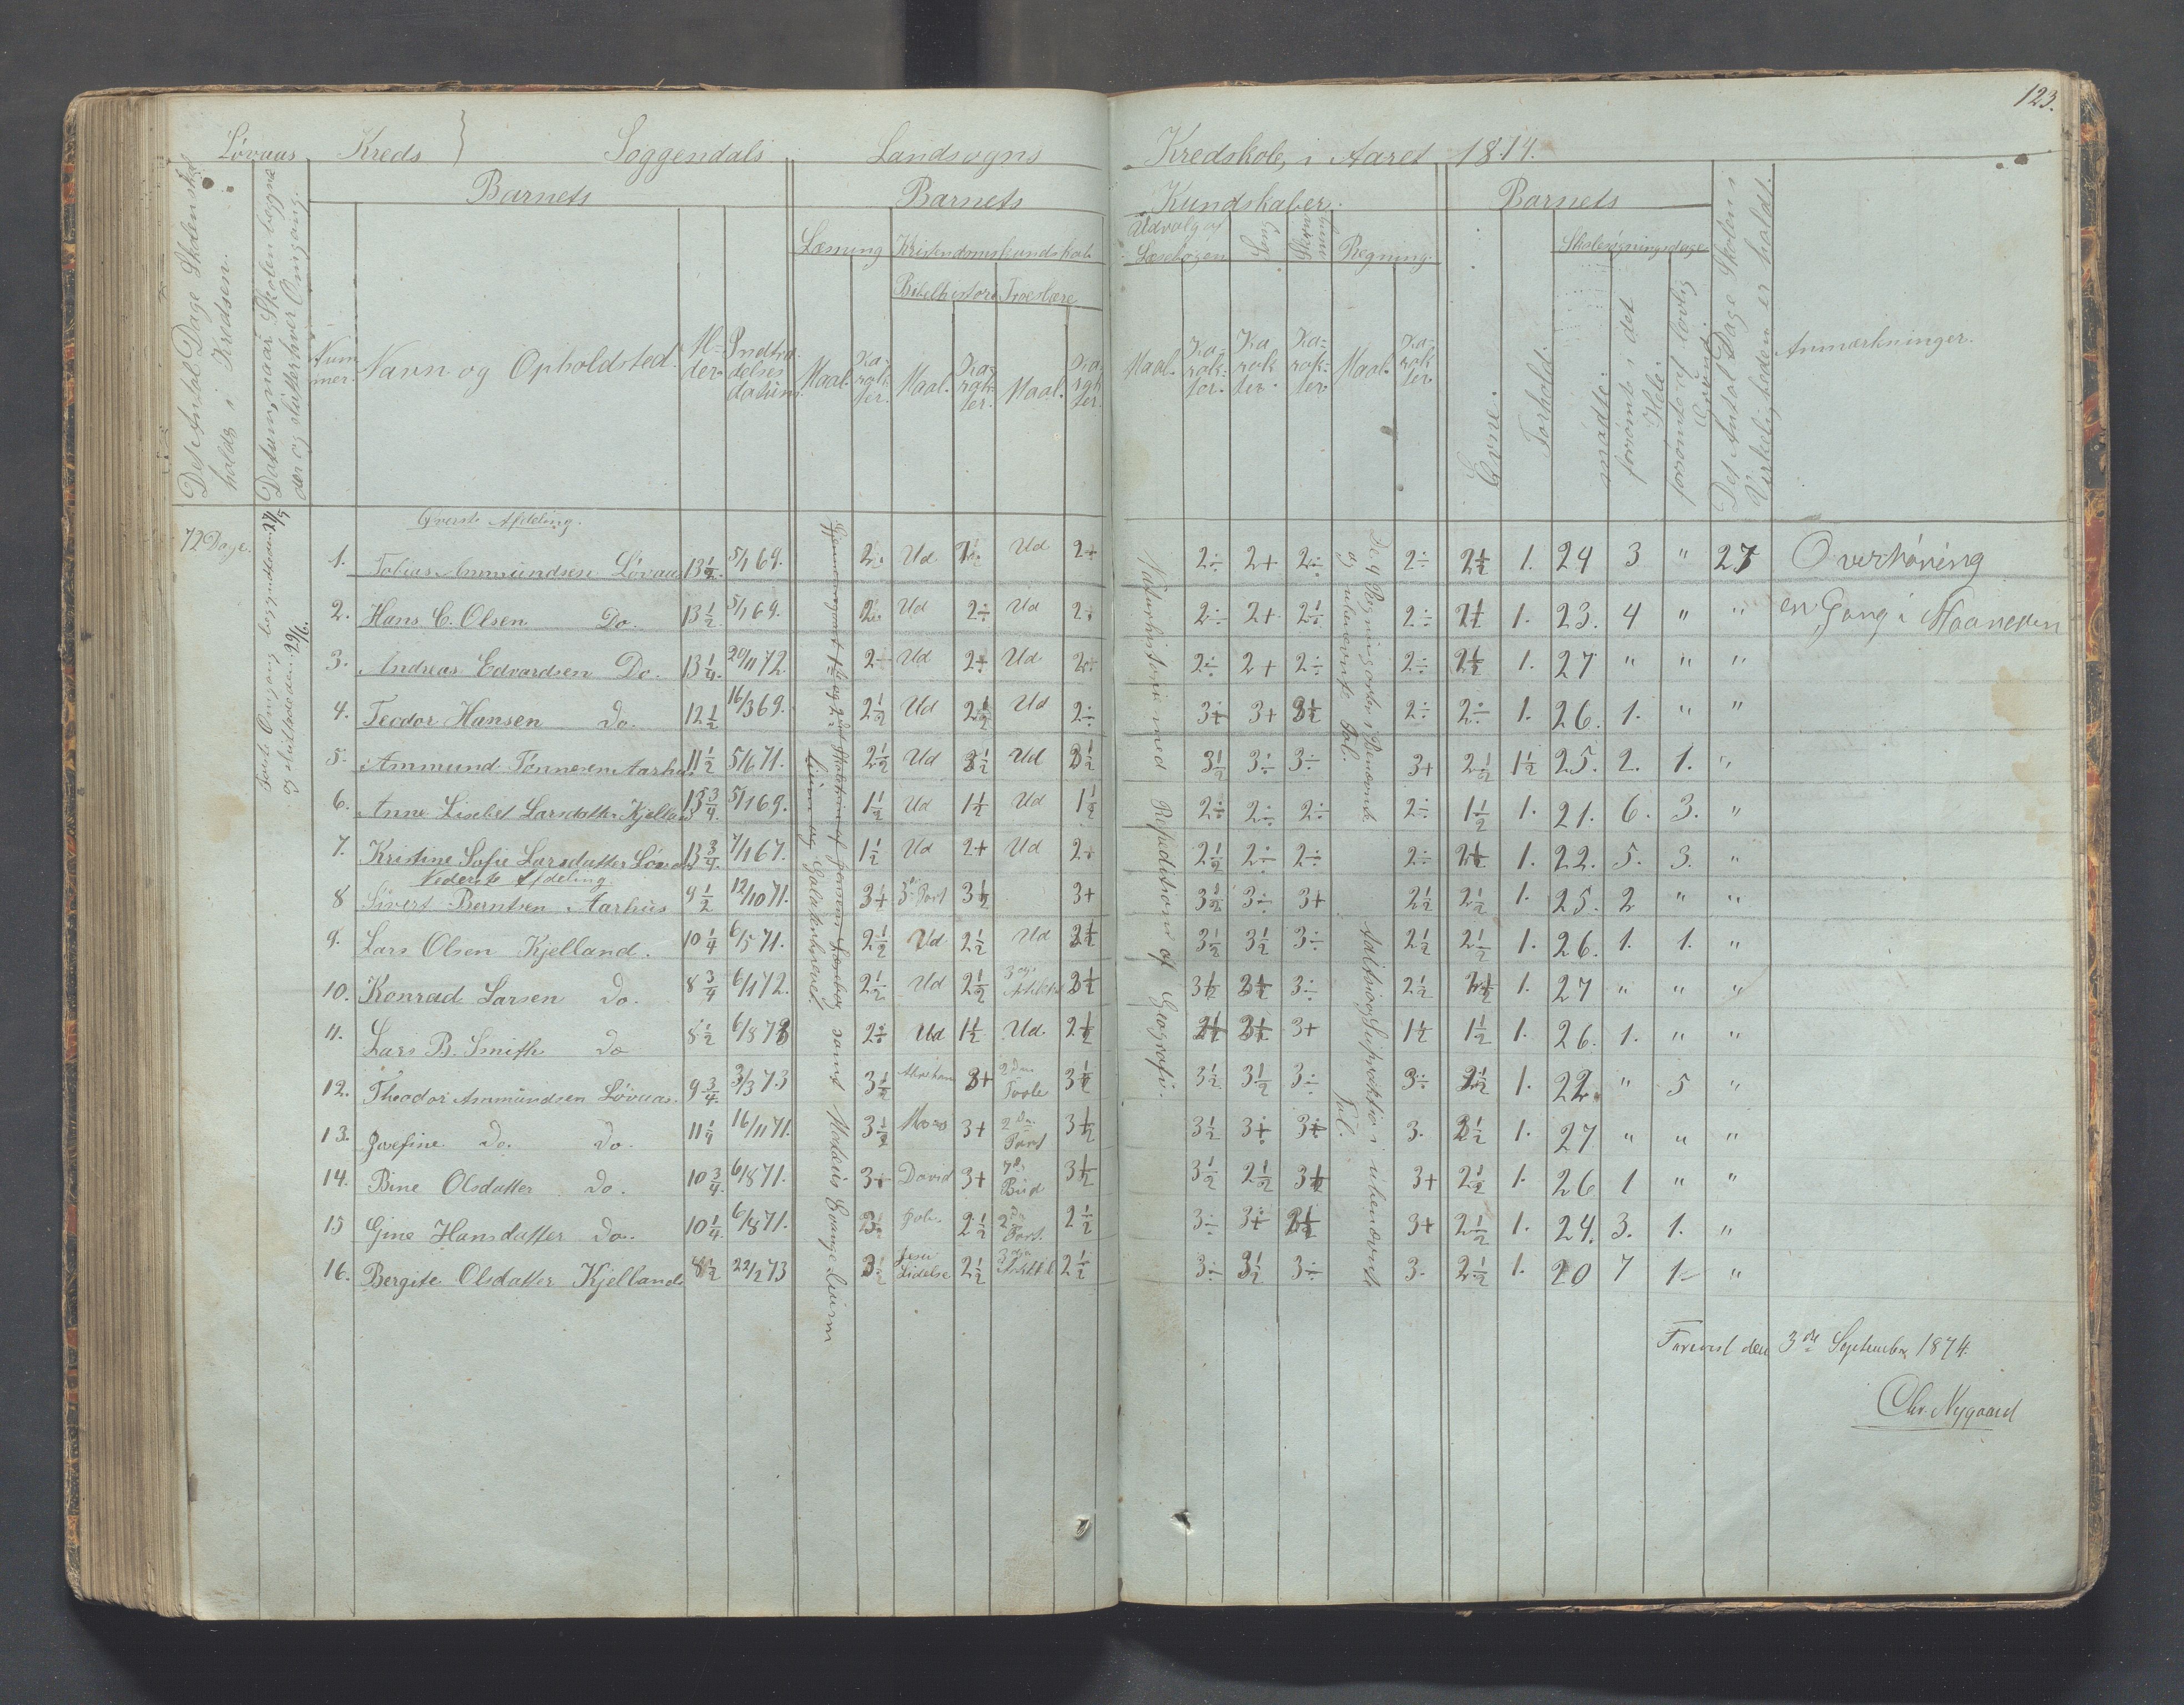 123.
Løvaas Kreds } Soggendals Landsogns Kredskole, i Aaret 1874.
Det Antal Dage Skolen skal holdes i Kredsen.
Datum, naar Skolen begynder og slutter hver Omgang.
Barnets Barnets Kundskaber. Barnets
Nummer. Navn og Opholdsted. Alder Indtrædelses datum.
Læsning Kristendomskundskab
Bibelhistorie Troeslære
Maal. Karakter. Maal. Karakter. Maal. Karakter.
Udvalg af Læsebogen Sang Skrivning Regning.
Maal. Karakter. Karakter. Karakter Maal. Karakter
Evne. Forhold. Skolesøgningsdage.
mødte. forsømte i det Hele. forsømte af lovlig Grund.
Det Antal Dage Skolen i Virkeligheden er holdt.
Anmærkninger.
72 Dage.
Øverste Afdeling.
1. Tobias Ammundsen Løvaas 13 1/2 5/1 69. 2÷ Ud 2÷ Ud 2+ 2÷ 2+ 2÷ 2÷ 2 1/2 1. 24 3 " 27 Overhøring
2. Hans C. Olsen Do. 13 1/2 5/1 69. 2÷ Ud 2÷ Ud 2÷ 2÷ 2+ 2 1/2 2÷ 2 1/2 1. 23. 4 " " en Gang i Maaneden
3. Andreas Edvardsen Do. 13 1/4 20/11 72. 2÷ Ud 2+ Ud 2÷ 2÷ 2+ 2÷ 2÷ 2 1/2 1. 27 " " "
4. Teodor Hansen do. 12 1/2 16/3 69. 2 1/2 Ud 2 1/2 Ud 2÷ 3+ 3+ 3 1/2 2÷ 2÷ 1. 26. 1. " "
5. Ammund Tønnesen Aarhus 11 1/2 5/6 71. 2 1/2 Ud 3 1/2 Ud 3 1/2 3 1/2 3÷ 3÷ 3+ 2 1/2 1 1/2 25. 2. 1. "
6. Anne Lisebet Larsdatter Kjelland 13 3/4 5/1 69. 1 1/2 Ud 1 1/2 Ud 1 1/2 2÷ 2÷ 2÷ 2÷ 1 1/2 1. 21. 6. 3. "
7. Kristine Sofie Larsdatter Løvaas 13 3/4 7/1 67. 1 1/2 Ud 2+ Ud 2÷ 2 1/2 2÷ 2÷ 2÷ 2 1/2 1. 22. 5. 3. "
Nederste Afdeling.
8 Sivert Berntsen Aarhus 9 1/2 12/10 71. 3+ 3 Part 3 1/2 3+ 3 1/2 3÷ 3+ 2 1/2 2 1/2 1. 25. 2 " "
9. Lars Olsen Kjelland. 10 1/4 6/5 71. 2 1/2 Ud 2 1/2 Ud 3 1/2 3 1/2 3 1/2 3÷ 2 1/2 2 1/2 1. 26. 1. 1. "
10. Konrad Larsen do. 8 3/4 6/1 72. 2 1/2 Ud 2 1/2 3 1/2 3 1/2 3 1/2 3÷ 2 1/2 2 1/2 1. 27 " " "
11. Lars B. Smith do 8 1/2 6/8 73 2÷ Ud 1 1/2 Ud. 2 1/2 2 1/2 3 1/2 3+ 1 1/2 1 1/2 1. 26. 1. " "
12. Theodor Ammundsen Løvaas. 9 3/4 3/3 73 3 1/2 Abraham 3+ 3 1/2 3 1/2 3 1/2 3÷ 3÷ 2 1/2 1. 22. " 5 "
13. Josefine do. do. 11 1/4 16/11 71. 3 1/2 Moses 3+ 2 Part 3 1/2 3 1/2 3+ 3+ 3. 2 1/2 1. 27 " " "
14. Bine Olsdatter do. 10 3/4 6/8 71. 3÷ David 3+ 7de Bud 3 1/2 3 1/2 2 1/2 3 1/2 3+ 2 1/2 1. 26 1 " "
15 Gine Hansdatter do. 10 1/4 6/8 71. 3÷ Joh. 2 1/2 2 Part. 2 1/2 3÷ 3+ 2 1/2 3+ 2 1/2 1. 24. 3. 1. "
16. Bergite Olsdatter Kjelland 8 1/2 22/2 73 3 1/2 Jesu Lidelse 2 1/2 2 1/2 3÷ 3 1/2 3÷ 3. 2 1/2 1. 20 7 1 "
Første Omgang begyndte den 24/5 og sluttede den 29/6.
Gjennemgaaet 1ste og 2det Skoletrin af Jensens Læsebog samt Mathæus Evangelium
Naturhistorie med Repedition af Geografi.
De 4 Regningsarter i Benævnte og ubenævnte Tal.
Adition og Suptraktion i ubenævnte Tal.
Forevist den 3de September 1874.
Chr. Nygaard